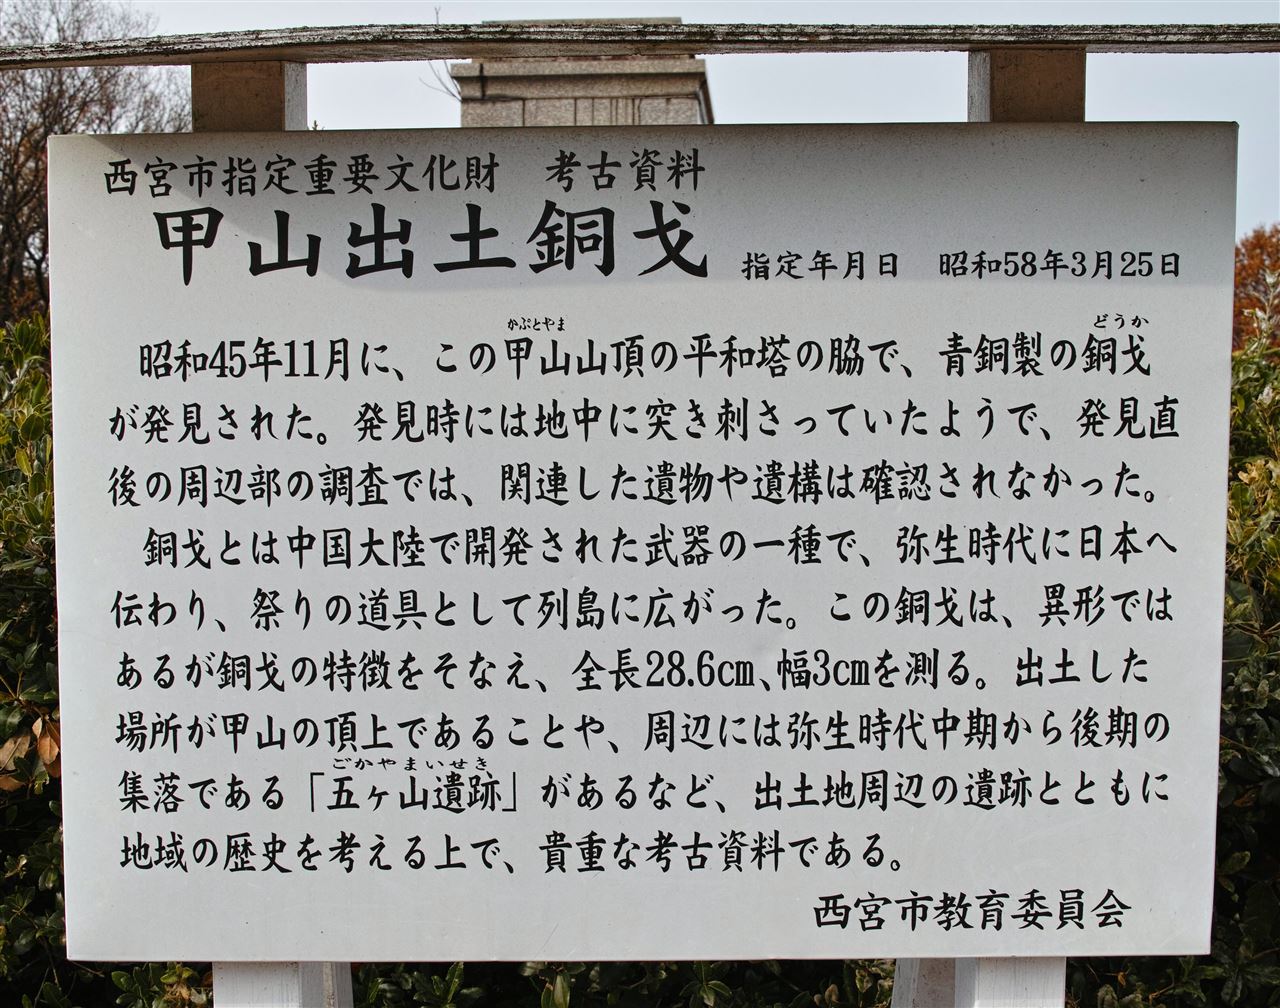 西宮市指定重要文化財　考古資料
甲山出土銅戈　指定年月日　昭和58年3月25日
かぶとやま　どうか
昭和45年11月に、この甲山山頂の平和塔の脇で、青銅製の銅戈
が発見された。発見時には地中に突き刺さっていたようで、発見直
後の周辺部の調査では、関連した遺物や遺構は確認されなかった。
銅戈とは中国大陸で開発された武器の一種で、弥生時代に日本へ
伝わり、祭りの道具として列島に広がった。この銅戈は、異形では
あるが銅戈の特徴をそなえ、全長28.6cm、幅3cmを測る。出土した
場所が甲山の頂上であることや、周辺には弥生時代中期から後期の
ごかやまいせき
集落である「五ヶ山遺跡」があるなど、出土地周辺の遺跡とともに
地域の歴史を考える上で、貴重な考古資料である。
西宮市教育委員会